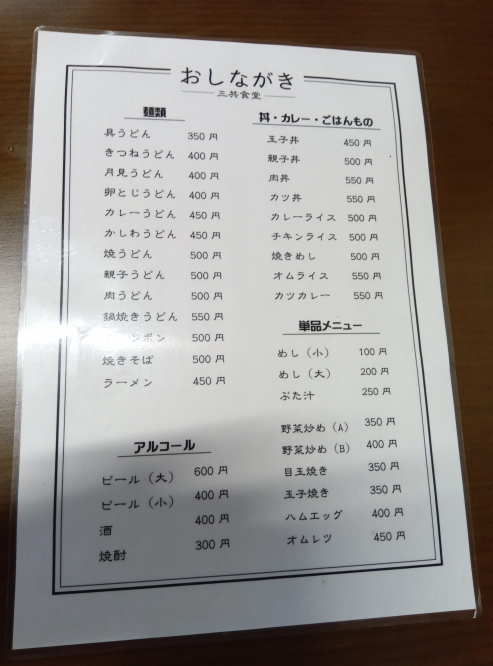 おしながき
三共食堂
麺類
具うどん 350 円
きつねうどん 400 円
月見うどん 400 円
卵とじうどん 400 円
カレーうどん 450 円
かしわうどん 450 円
焼うどん 500 円
親子うどん 500 円
肉うどん 500 円
鍋焼きうどん 550 円
ンポン 500 円
焼きそば 500 円
ラーメン 450 円
アルコール
ビール（大） 600 円
ビール（小） 400 円
酒 400 円
焼酎 300 円
丼・カレー・ごはんもの
玉子丼 450 円
親子丼 500 円
肉丼 550 円
カツ丼 550 円
カレーライス 500 円
チキンライス 500 円
焼きめし 500 円
オムライス 550 円
カツカレー 550 円
単品メニュー
めし（小） 100 円
めし（大） 200 円
ぶた汁 250 円
野菜炒め（A） 350 円
野菜炒め（B） 400 円
目玉焼き 350 円
玉子焼き 350 円
ハムエッグ 400 円
オムレツ 450 円